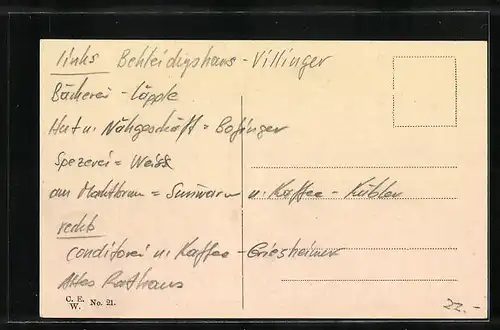 links Bekleidigshaus - Villinger
Bäckerei - Läpple
Hut u. Nähgeschäft = Bofinger
Spezerei = Weiss
am Marktbrun = Sunwarw u. Kaffee - Kübler
rechts
Conditorei u. Kaffee - Griesheimer
Altes Rathaus
C. E.
W. No. 21.
22.-